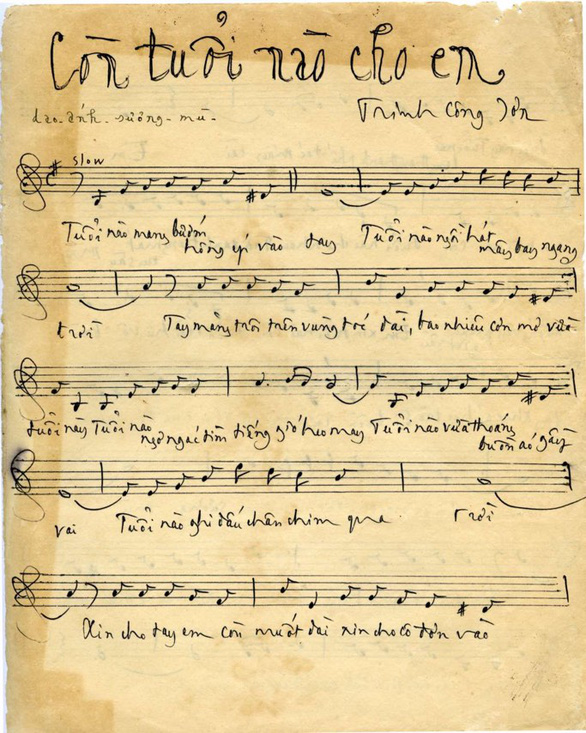 Còn tuổi nào cho em
dao-ánh-sương-mù-
Trịnh Công Sơn
slow
Tuổi nào mang bướm hồng vào tay Tuổi nào ngồi hát mây bay ngang
trời Tay măng trôi trên vùng tóc dài, bao nhiêu cơn mơ vừa
tuổi này Tuổi nào ngơ ngác tìm tiếng gió heo may Tuổi nào vừa thoáng buồn áo gầy
vai Tuổi nào ghi dấu chân chim qua trời
Xin cho tay em còn muốt dài xin cho cô đơn vào